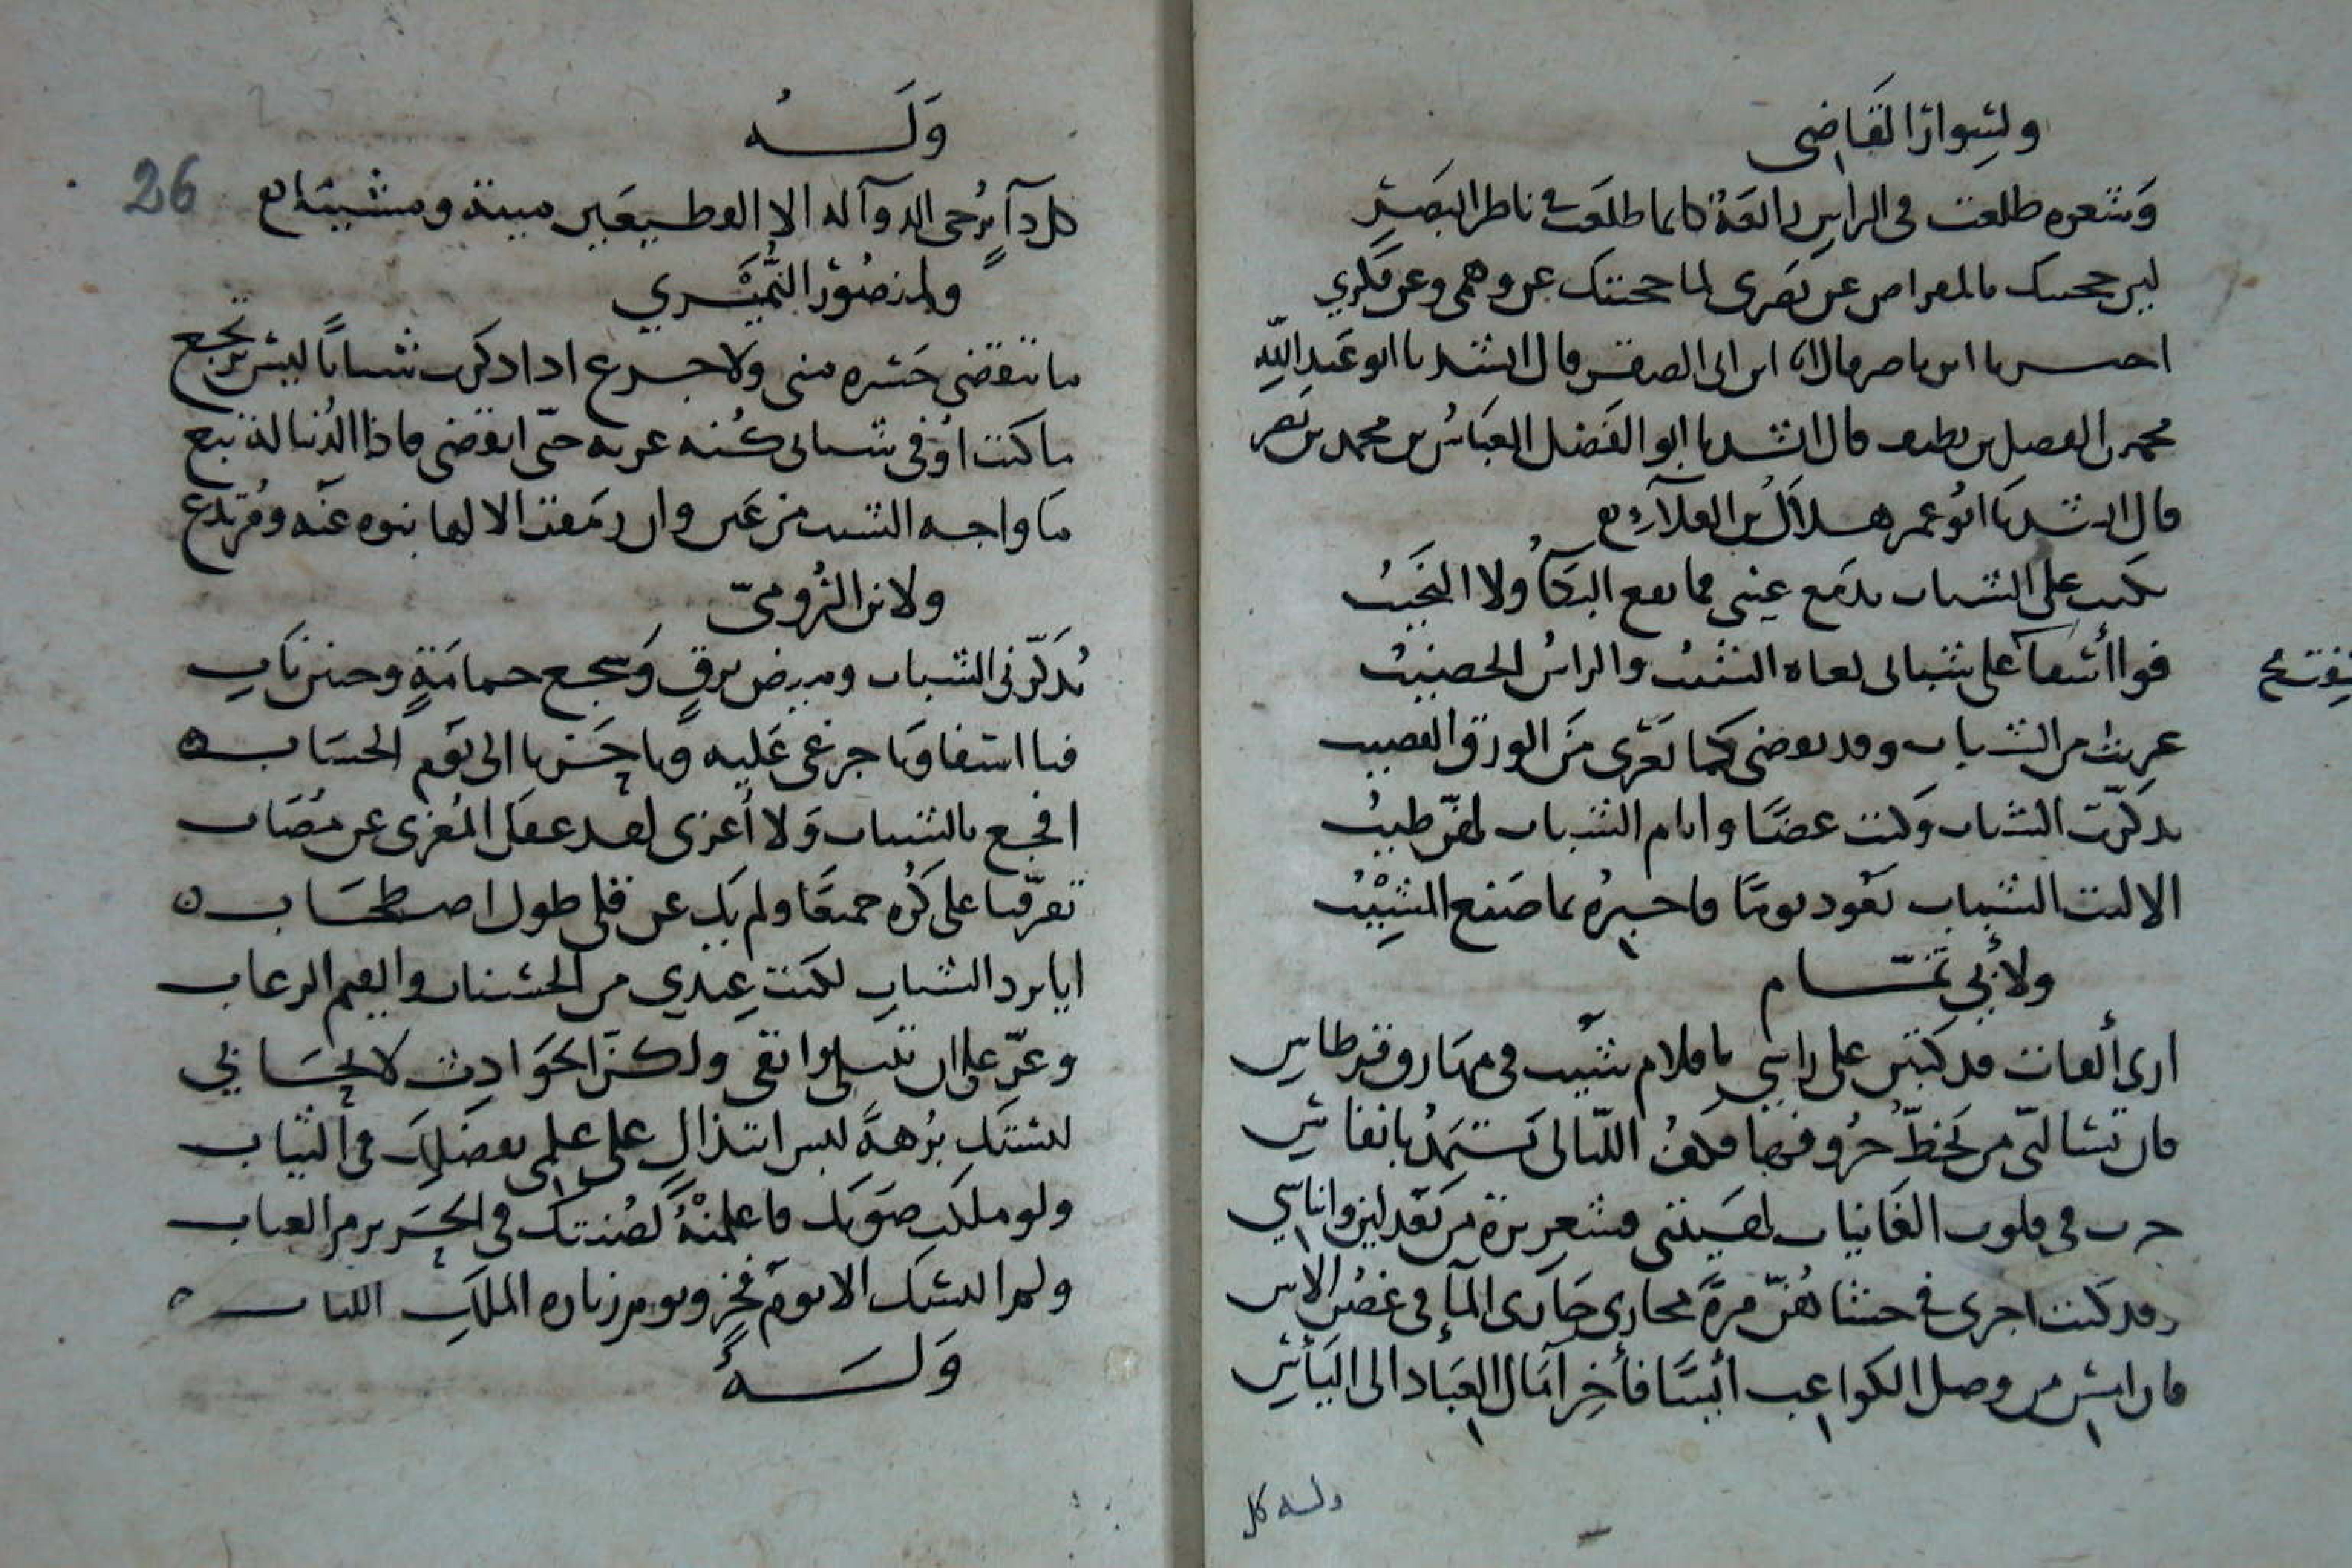 ولسوار القاضى
وشعره طلعت فى الراس رائعة كانما طلعت فى ناظر البصر
لين حجبتك بالمقراض عن بصرى لما حجبتك عن وهمى وعن فكري
اخبرنا ابن ناصر قال انا ابن ابى الصقر قال انشدنا ابو عبد الله
محمد بن الفضل بن نظيف قال انشدنا ابو الفضل العباس بن محمد بن نصر
قال انشدنا ابو عمر هلال بن العلآء
بكيت على الشباب بدمع عينى فما نفع البكآ ولا النحيب
فواأسفآ على شبابى نعاه الشيب والراس الخضيب
عريت من الشباب وقد نوضى كما تعرى من الورق القضيب
تذكرت الشباب وكنت غضا وايام الشباب لهن طيب
الا ليت الشباب يعود يوما فاخبره بما صنع المشيب
ولأبي تمام
ارى ألفات قد كتبن على راسي باقلام شيب فى مهارق قرطاس
فان تسالنى من يخط حروفها فكف الليالى تستمد بانفاس
جرت فى قلوب الغانيات لشيبتى قشعريرة من بعد لين وايناسي
وقد كنت اجرى فى حشاهن مرة مجارى جارى المآء فى غصن الاس
فان امس من وصل الكواعب أيسا فأخر آمال العباد الى اليأس
وله كل
وله
كل دآء يرجى الدوآ له الا الفظيعين ميتة ومشيبا
ولمنصور النميري
ما تنقضى حسرة منى ولا جزع اذا ذكرت شبابا ليس يرتجع
ما كنت اوفى شبابى كنه عزته حتى انقضى فاذا الدنيا له تبع
ما واجه الشيب من عين وان رمقت الا لها نبوه عنه ومرتدع
ولابن الرومي
يذكرنى الشباب وميض برق وسجع حمامة وحنين ناب
فيا اسفا ويا جزعى عليه ويا حزنا الى يوم الحساب
افجع بالشباب ولا أعزى لقد غفل المعزى عن مصاب
تفرقنا على كره جميعا ولم يك عن قلى طول اصطحاب
ايا برد الشباب لكنت عندي من الحسنات والقسم الرغاب
وعز على ان تبلى وابقى ولكن الحوادث لا تحابي
لبستك برهة لبس ابتذال على علمى بفضلك فى الثياب
ولو ملكت صونك فاعلمنه لصنتك فى الحريز من العياب
ولم البسك الا يوم فخر ويوم زيارة الملك اللباب
وله